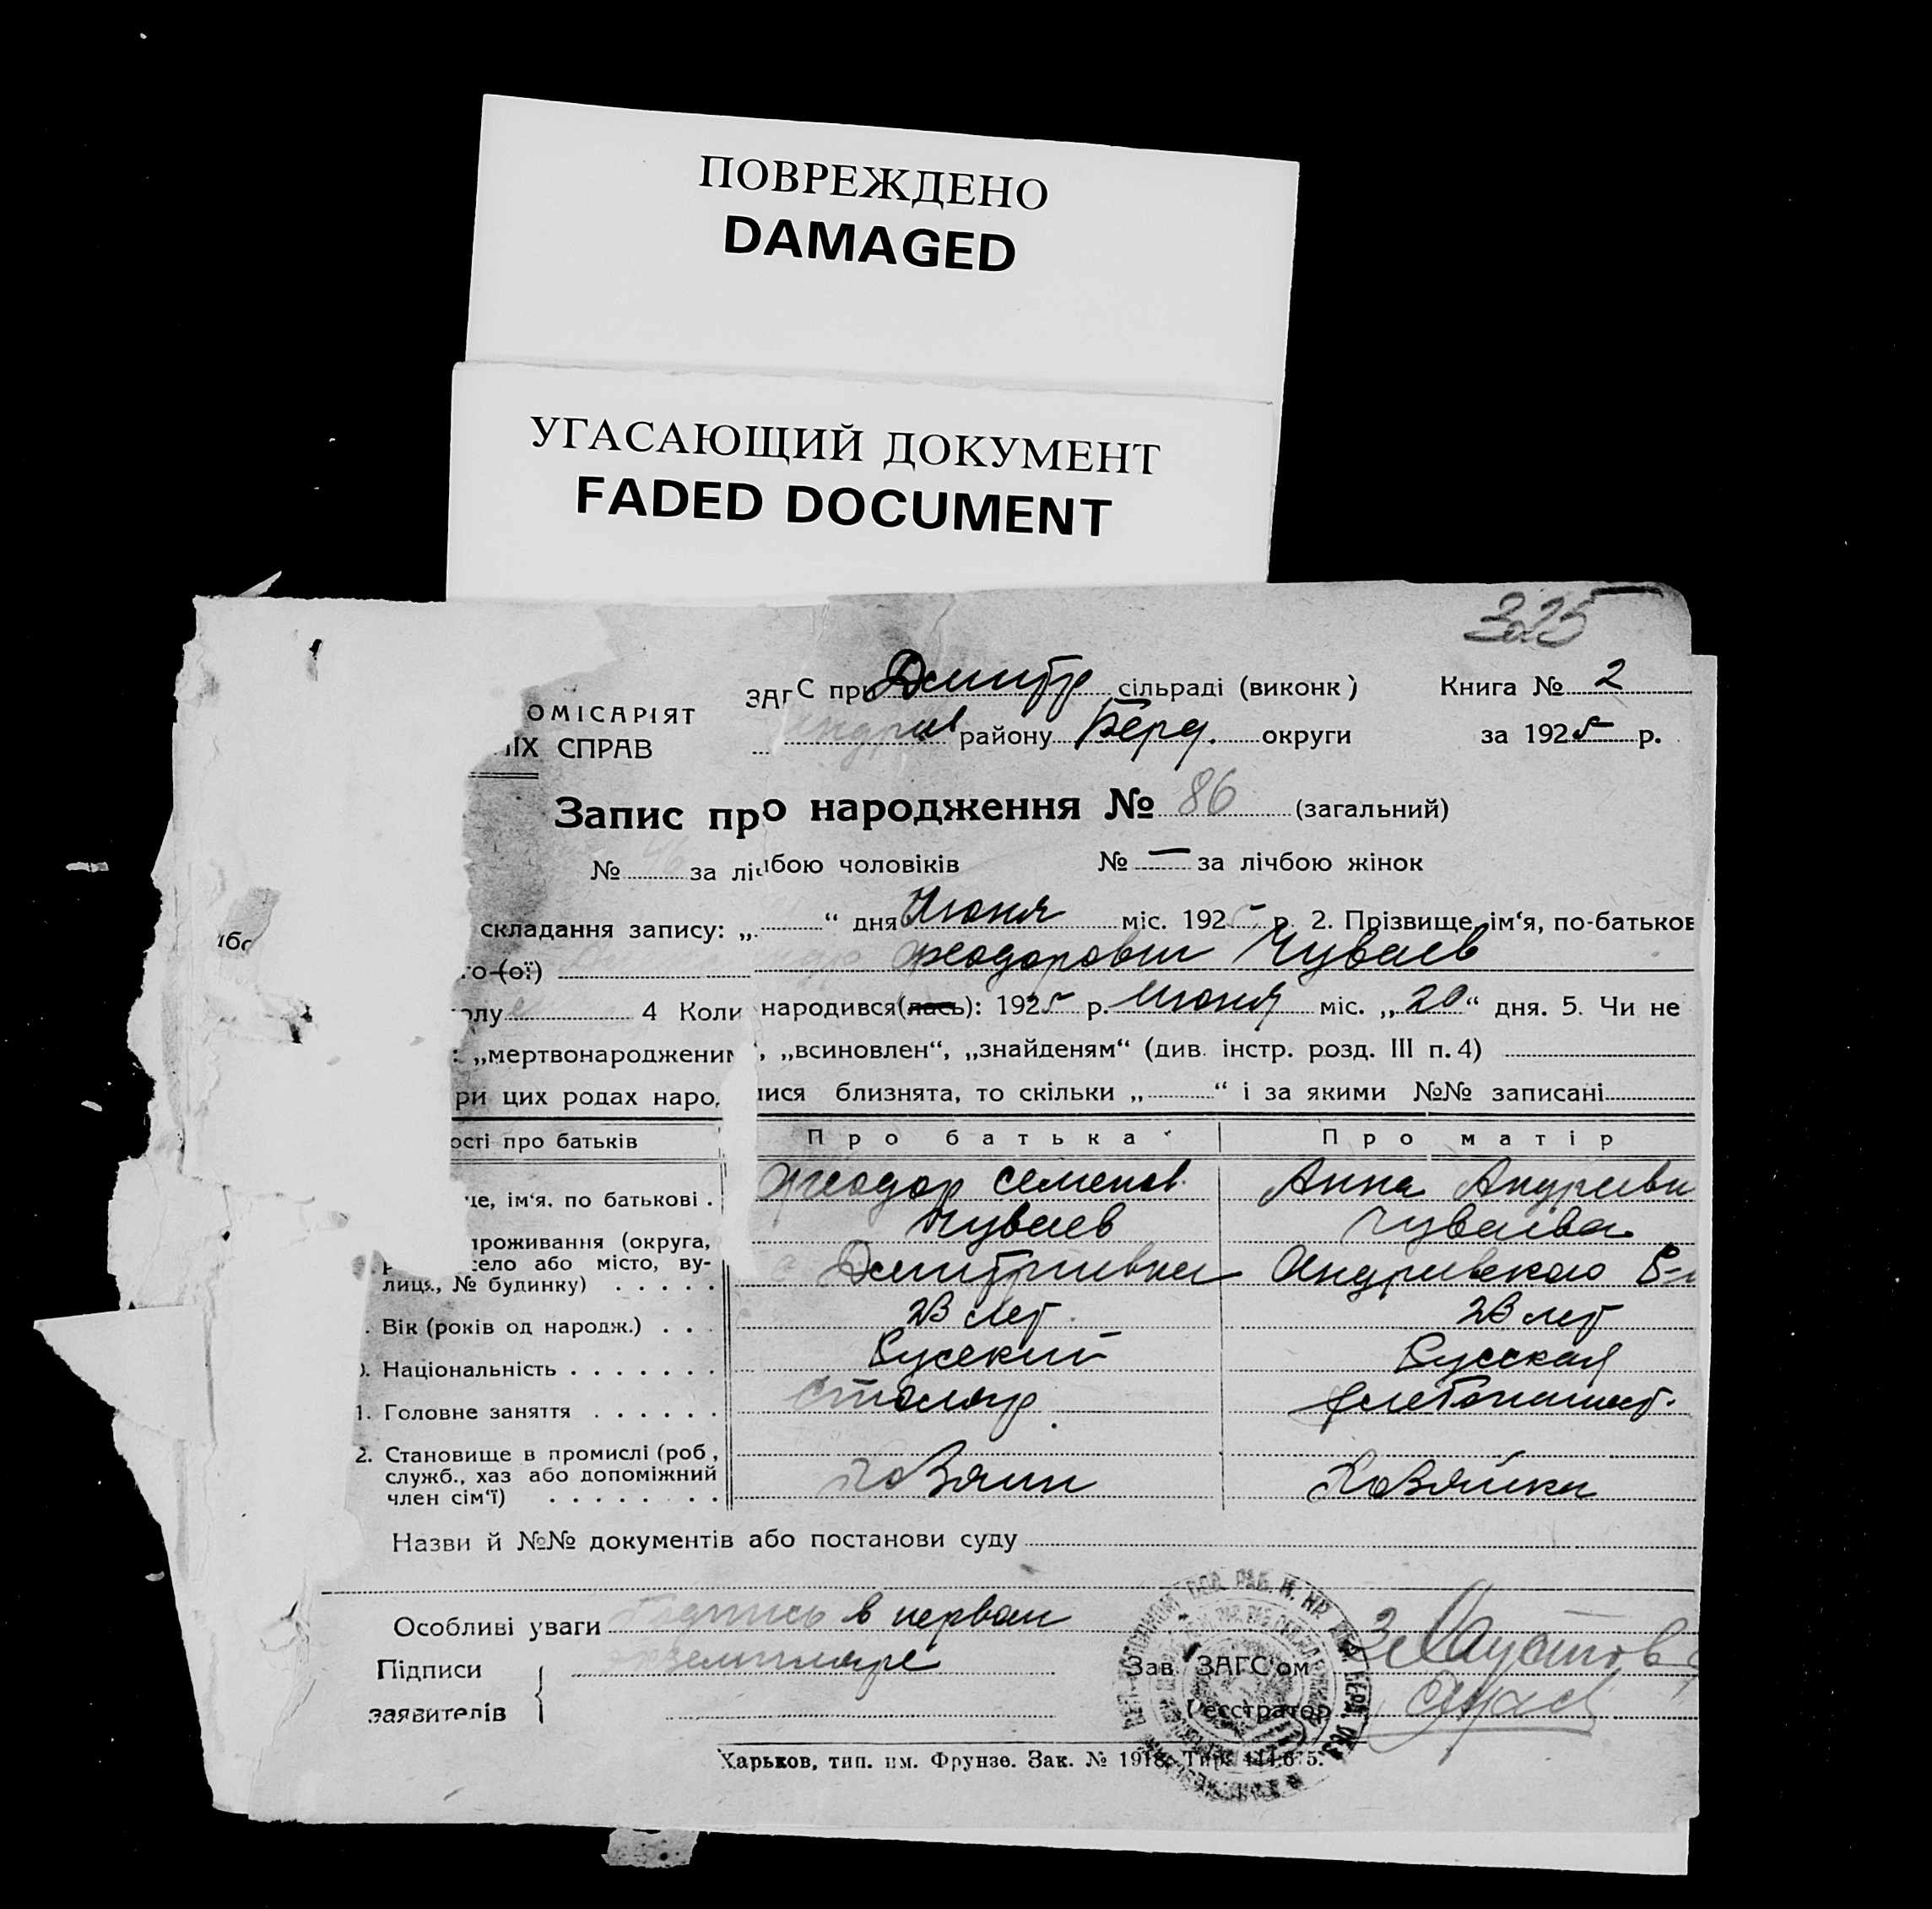 ПОВРЕЖДЕНО
DAMAGED
УГАСАЮЩИЙ ДОКУМЕНТ
FADED DOCUMENT
325
ЗАГС при Дмитр сільраді (виконк) Книга № 2
ОМІСАРІЯТ
району Берд. округи за 1925 р.
ІХ СПРАВ
Запис про народження № 86 (загальний)
№ 46 за лічбою чоловіків № — за лічбою жінок
складання запису: „ “ дня Июня міс. 1925 р. 2. Прізвище, ім‘я, по-батьков
го (ої) Феодорович Чуваев
олу 4 Коли народився(лась): 1925 р. Июня міс. „20“ дня. 5. Чи не
: „мертвонароджений“, „всиновлен“, „знайденям“ (див. інстр. розд. III п. 4)
ри цих родах народилися близнята, то скільки „ “ і за якими №№ записані
ості про батьків Про батька Про матір
це, ім‘я. по батькові . Феодор Семенов. Анна Андриевн
Чуваев Чуваева
проживання (округа,
село або місто, ву-
лиця, № будинку) . . . . . Дмитриевка Андриевского Р-н
. Вік (років од народж.) . . 23 лет. 23 лет
). Національність . . . . . . . Русский Русская
1. Головне заняття . . . . . . Столяр
2. Становище в промислі (роб,
служб., хаз або допоміжний
член сім‘ї) . . . . . . . Хозяин Хозяйка
Назви й №№ документів або постанови суду
Особливі уваги Подпись в первом
Підписи экземпляре Зав. ЗАГС‘ом
заявителів Реєстратор
Харьков, тип. им. Фрунзе. Зак. № 1918. Тир.